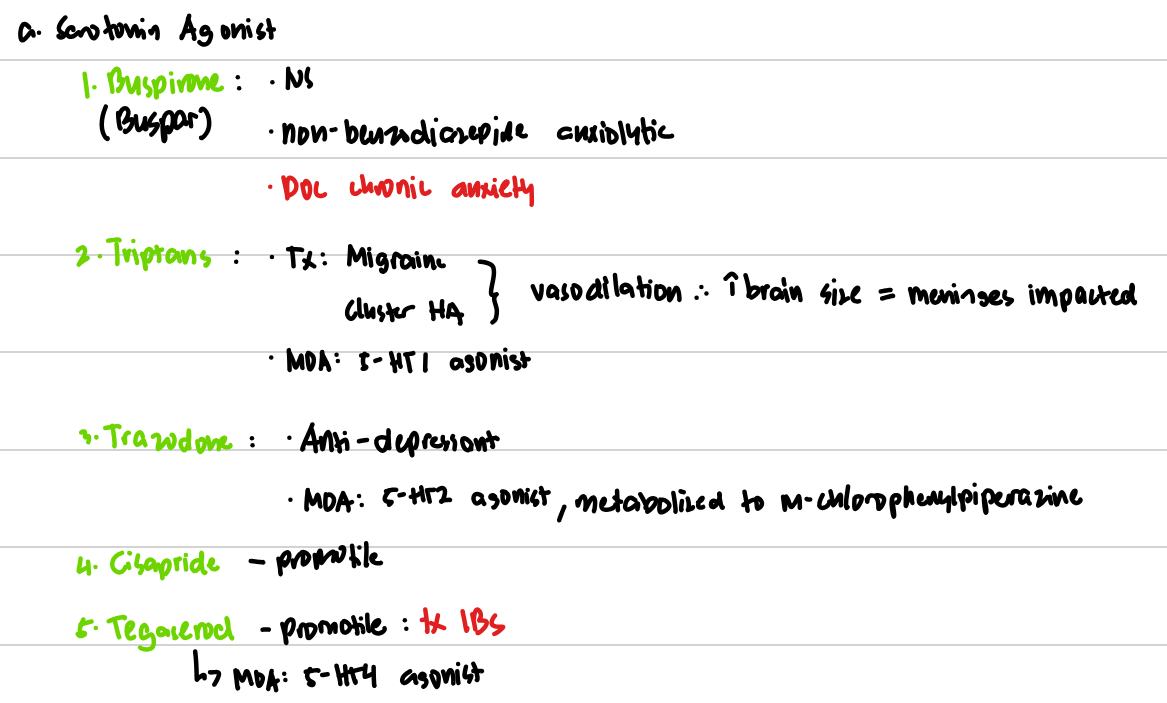 a. Serotonin Agonist
1. Buspirone : · NS
(Buspar)
· non-benzodiazepine anxiolytic
· DOC chronic anxiety
2. Triptans : · Tx: Migraine
Cluster HA } vasodilation ∴ ↑ brain size = meninges impacted
· MOA: 5-HT1 agonist
3. Trazodone : · Anti-depressant
· MOA: 5-HT2 agonist, metabolized to m-chlorophenylpiperazine
4. Cisapride - promotile
5. Tegaserod - promotile : tx IBS
↳ MOA: 5-HT4 agonist